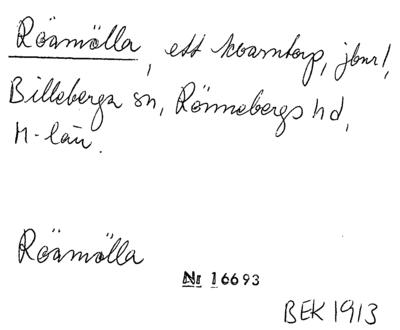 Röamölla, ett kvarntorp, jbnr 1,
Billeberga sn, Rönnebergs hd,
M-län.
Röamölla
Nr 16693
BEK 1913